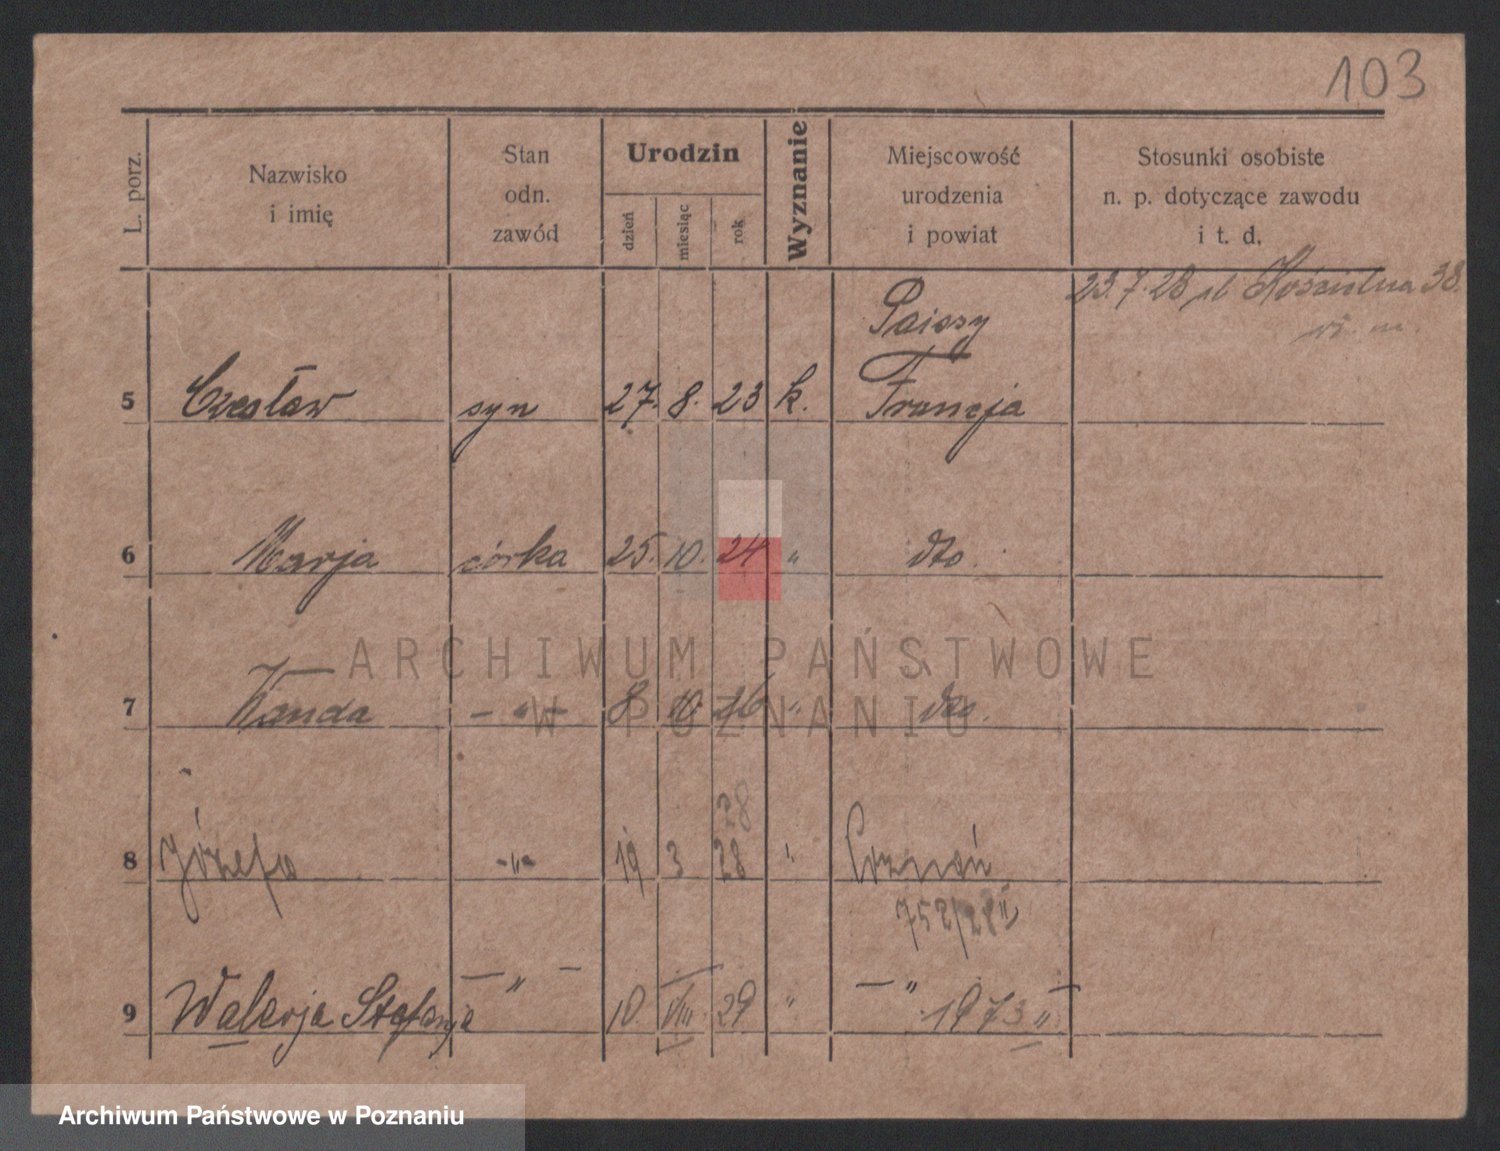 103
L. porz.
Nazwisko
i imię
Stan
odn.
zawód
Urodzin
dzień
miesiąc
rok
Wyznanie
Miejscowość
urodzenia
i powiat
Stosunki osobiste
n. p. dotyczące zawodu
i t. d.
23.7.28 ul. Kościelna 38.
5 Czesław syn 27. 8. 23 k. Francja
6 Marja córka 25. 10. 24 " dto.
ARCHIWUM PAŃSTWOWE
W POZNANIU
7 Wanda - " - 8 10 26 " dto.
28
8 Józefa - " - 19 3 28 " Poznań
752/28 II
9 Walerja Stefanja - " - 10. VIII. 29 " - " -
1973 II
Archiwum Państwowe w Poznaniu